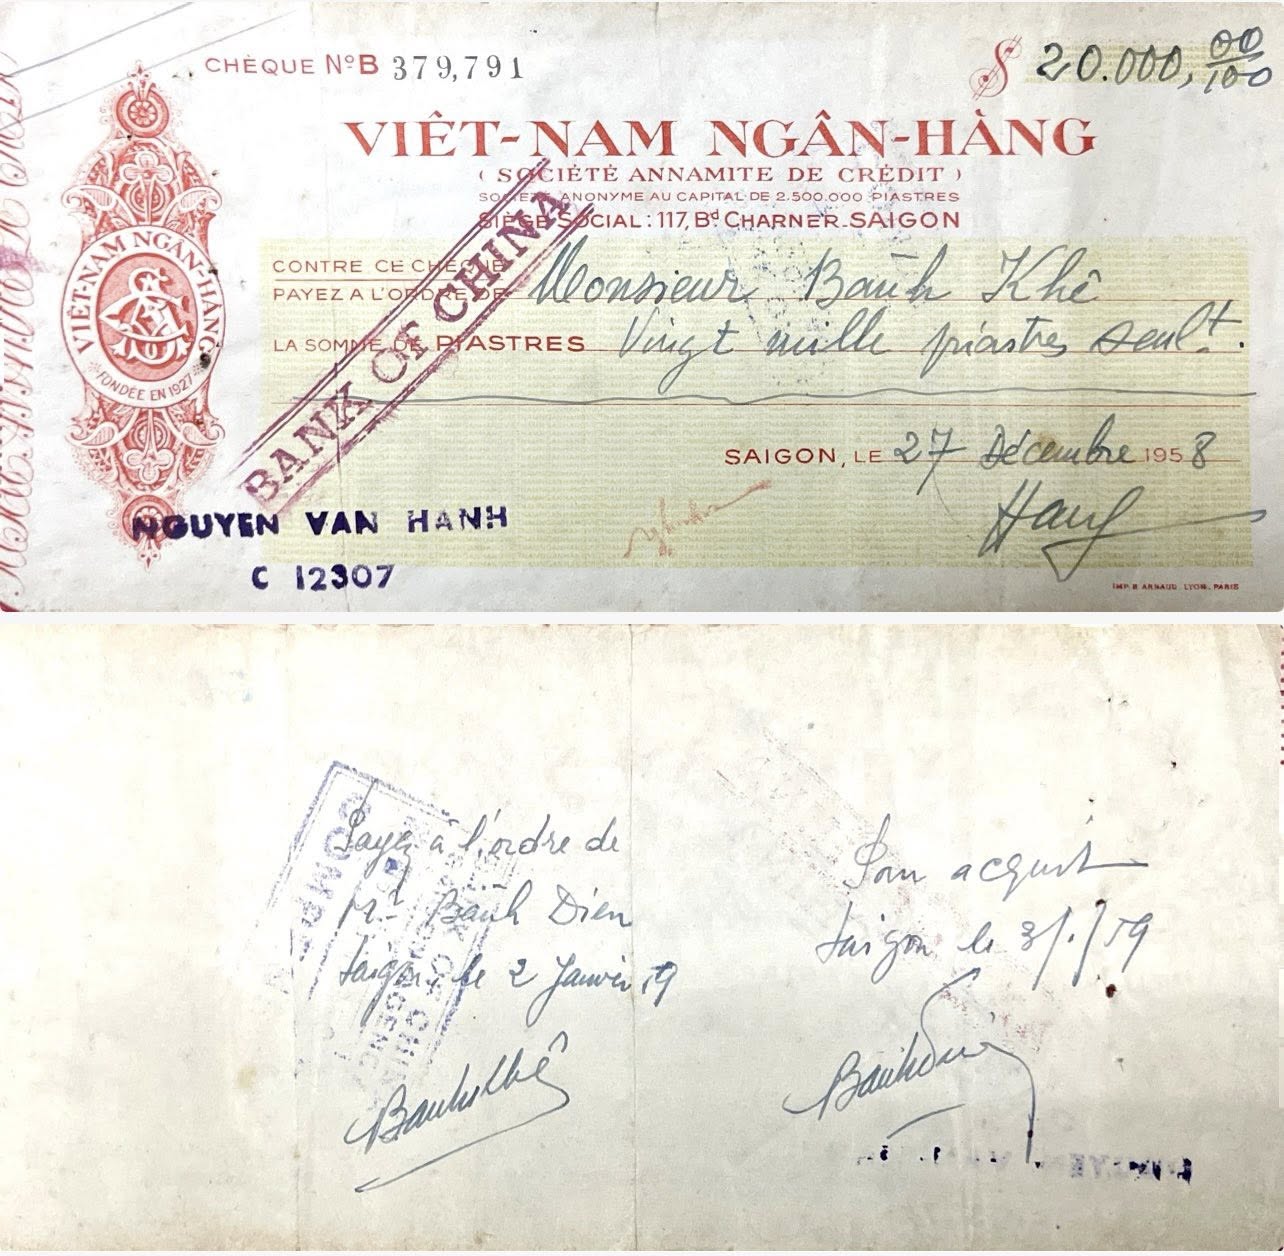 CHÈQUE Nº B 379,791
$ 20.000, 00/100
VIÊT-NAM NGÂN-HÀNG
( SOCIÉTÉ ANNAMITE DE CRÉDIT )
SOCIÉTÉ ANONYME AU CAPITAL DE 2.500.000 PIASTRES
SIÈGE SOCIAL : 117, Bd CHARNER. SAIGON
VIÊT-NAM NGÂN-HÀNG
FONDÉE EN 1927
CONTRE CE CHÈQUE
PAYEZ A L'ORDRE DE Monsieur Bańh Khê
LA SOMME DE PIASTRES Vingt mille piastres seult.
BANK OF CHINA
SAIGON, LE 27 Décembre 1958
Hanh
NGUYEN VAN HANH
C 12307
IMP. B. ARNAUD. LYON. PARIS
Payez à l'ordre de
Mr Bańh Dien
Saigon le 2 Janvier 59
Banhkhê
Pour acquit
Saigon le 3/1/59